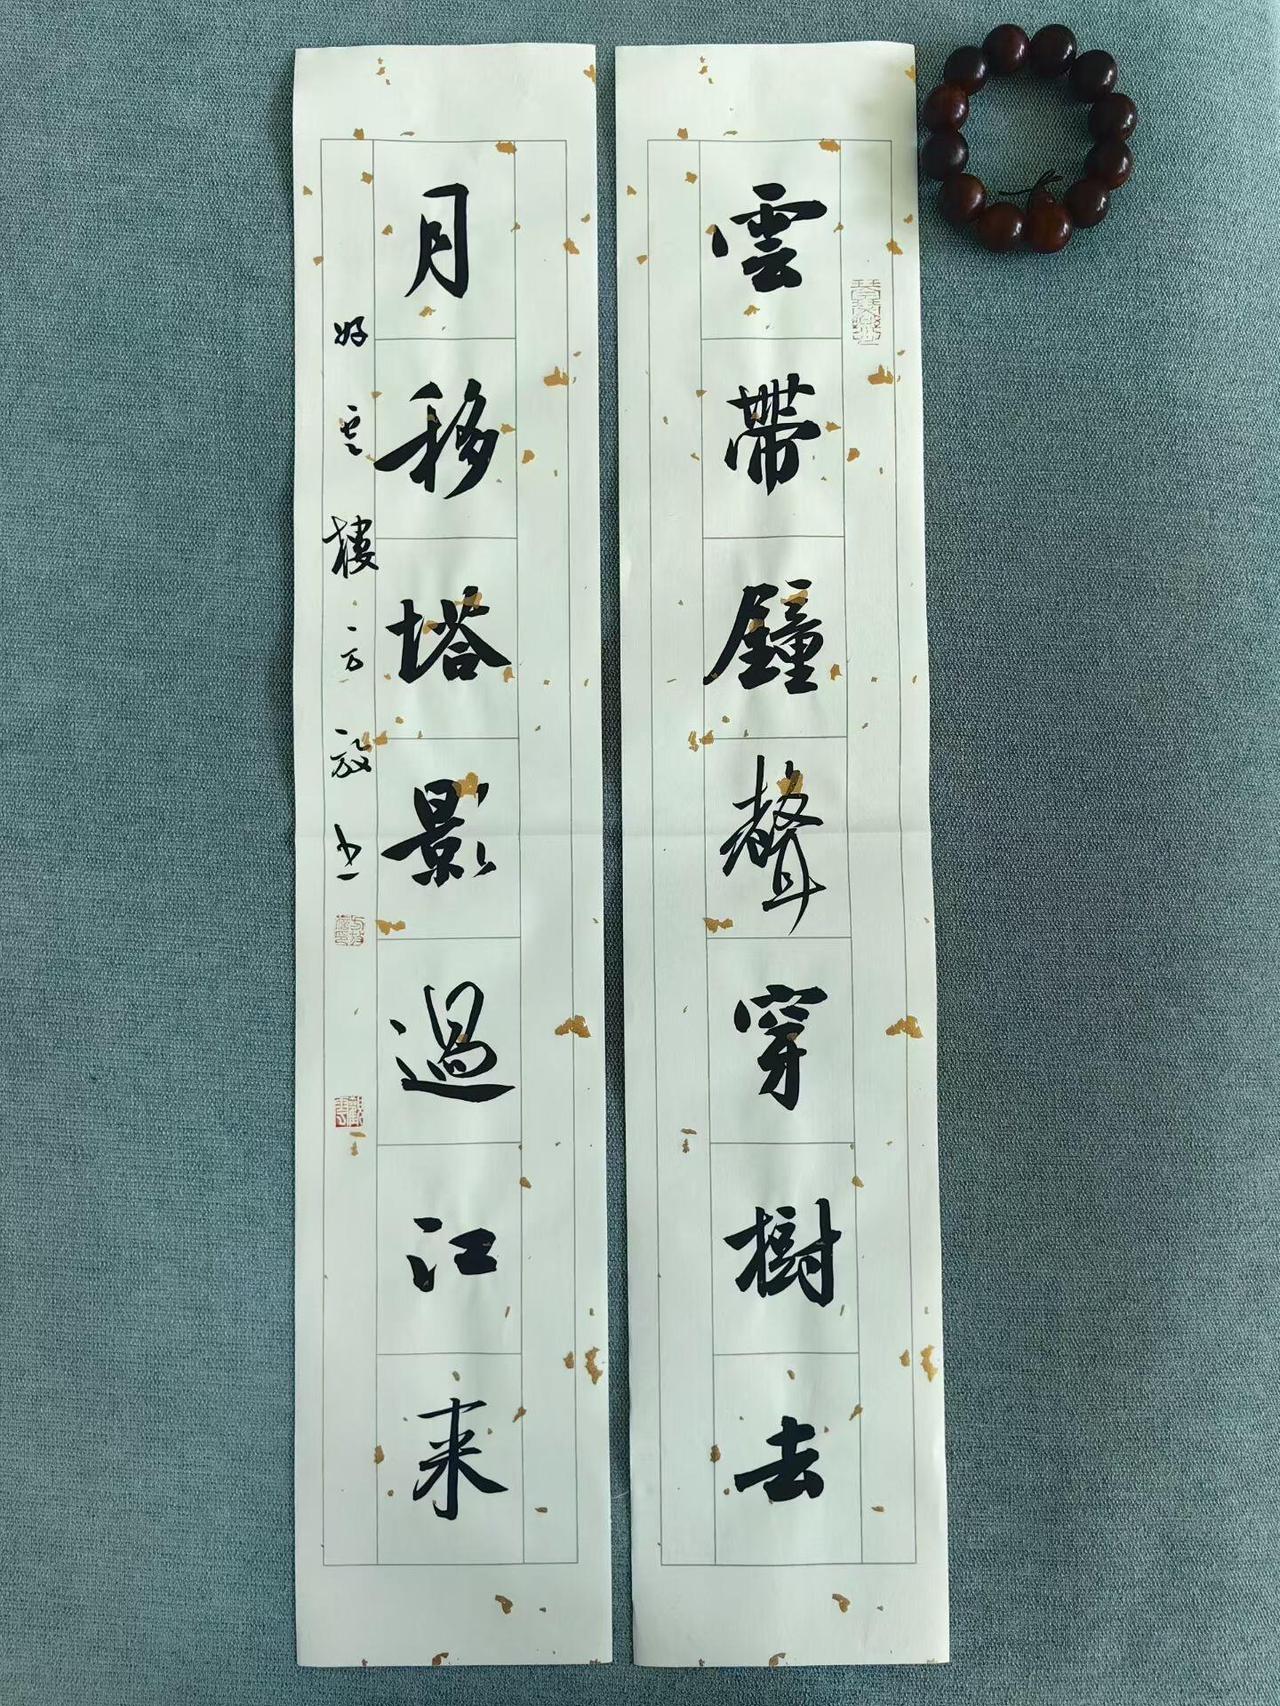 雲帶鐘聲穿樹去
月移塔影過江来
好雲樓方放书